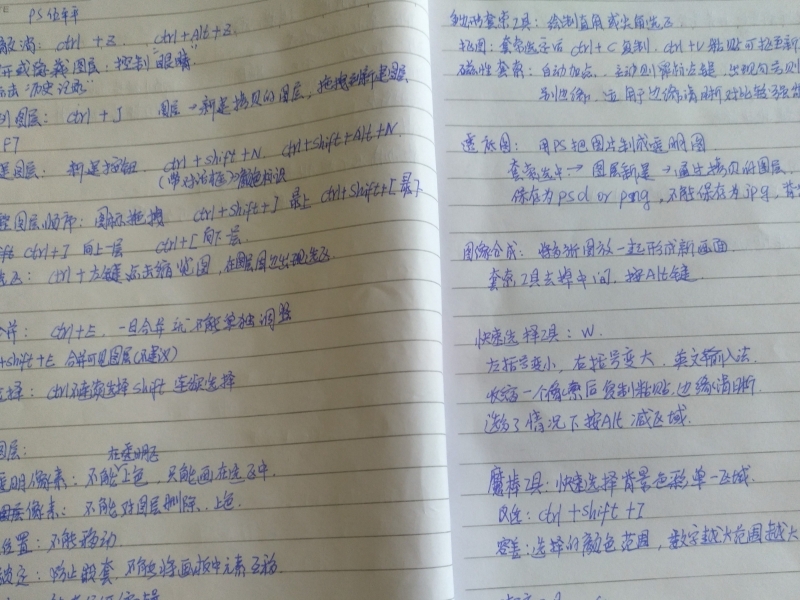 PS
撤消: ctrl + Z. ctrl+Alt+Z.
开或隐藏图层: 控制"眼睛"
点击"历史记录"
图层: ctrl + J 图层→新建拷贝的图层, 拖拽到新建图层
F7
建图层: 新建按钮. ctrl+shift+N. ctrl+shift+Alt+N
(带对话框)
整图层顺序: 图标拖拽 ctrl+shift+] 最上 ctrl+shift+[ 最下
ctrl+] 向上一层 ctrl+[ 向下一层.
选区: ctrl+左键点击缩览图, 在图层周边出现选区
合并: ctrl+E. 一旦合并就不能单独调整
+shift+E 合并可见图层(不建议)
选择: ctrl不连续选择 shift 连续选择
图层:
在透明区
透明像素: 不能上色, 只能画在选区中.
图层像素: 不能对图层删除. 上色.
位置: 不能移动
锁定: 防止嵌套. 不能将画板中元素互移.
多边形套索工具: 绘制直角或尖角选区
抠图: 套索选定后 ctrl+C复制, ctrl+V粘贴可抠至新
磁性套索: 自动加点,
别边缘, 适用于边缘清晰对比较强
透底图: 用PS把图片制成透明图
套索选中→图层新建→通过拷贝的图层.
保存为psd or png, 不能保存为jpg,
图像合成: 将拆图放一起形成新画面
套索工具去掉中间. 按Alt键
快速选择工具: W.
左括号变小, 右括号变大. 英文输入法.
收缩一个像素后复制粘贴.边缘清晰.
选多了情况下按Alt 减区域.
魔棒工具: 快速选择背景色彩单一区域.
反选: ctrl+shift+I
容差: 选择的颜色范围, 数字越大范围越大